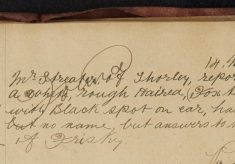 14. M
Mr Streater of Thorley, repor
a young rough Haired, Fox t
with Black spot on ear, ha
but no name, but answers to
of Frisky